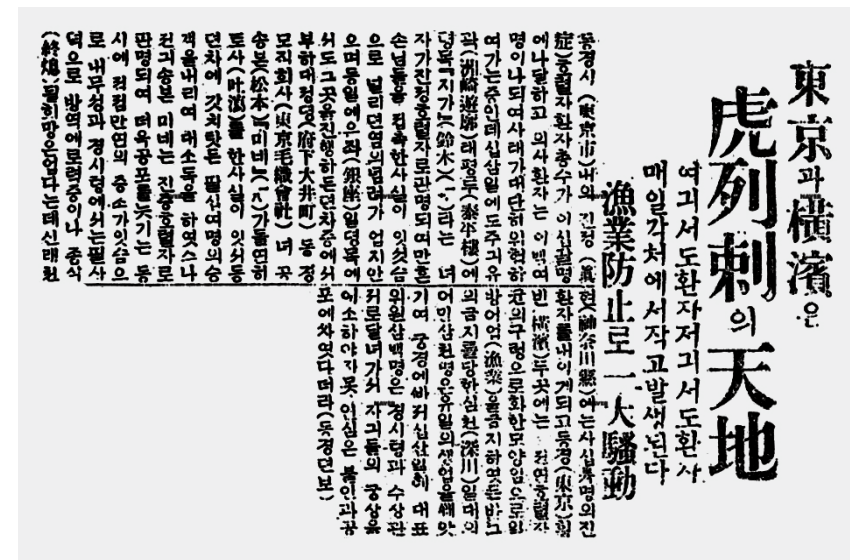 東京과 橫濱은
虎列刺의 天地
여긔서도환자저긔서도환자
매일각처에서작고발생된다
漁業防止로 一大騷動
동경시(東京市)내의 진정(眞
症)호렬자환자총수가 이십팔명
에나달하고 의사환자는 이백여
명이나되여사태가대단히위현하
여가는중인데십삼일에도주긔유
곽(洲崎遊廓)태평루(泰平樓)에
자가진정호렬자로판명되여만흔
손님들을 접촉한사실이 잇슴
으로 널리뎐염의념려가 업지안
으며동일에은좌(銀座)일뎡목에
서도그곳을진행하든뎐차중에서
부하대정뎡(府下大井町) 동경
모직회사(東京毛織會社) 녀공
송본(松本)미네
토사(吐瀉)를 한사실이 잇서동
뎐차에 갓치탓든 팔십여명의승
객을내리여 대소동을 하엿스나
전긔송본 미네는 진증호렬자로
판명되여 더욱공포를늣기는 동
시에 점점만연의 증소가잇슴으
로 내무성과 경시텽에서는필사
덕으로 방역에로력중이나 종식
(終熄)될희망은업다는데신래천
현(神奈川縣)에는사십
환자를내이게되고동경(東京)횡
빈(橫濱)두곳에는 전연호렬자
균의구렁으로화한모양임으로일
방어업(漁業)을금지하엿든바그
의금지를당한심천(深川)일대의
어민삼천명은유일의생업을쎄앗
기여 궁경에빠저십산일에 대표
위원삼백명은 경시텽과 수상관
저로달녀가서 자긔들의 궁상을
이소하야자못 인심은 불안과공
포에차엿다더라(동경뎐보)